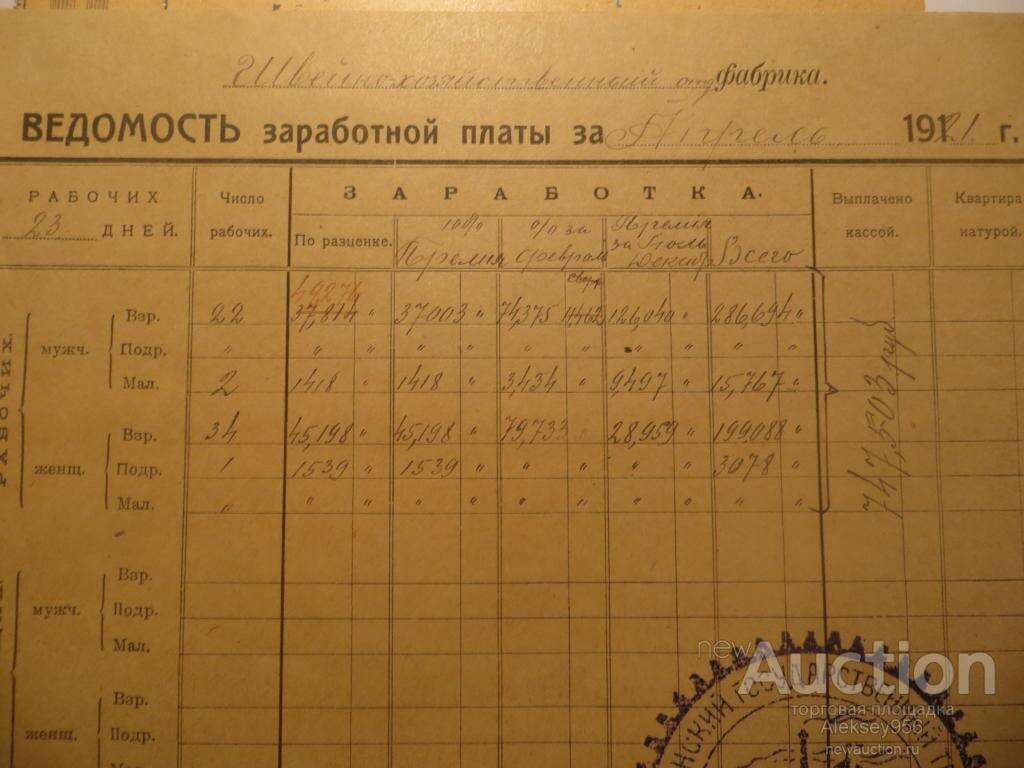 Швейнохозяйственный отд фабрика.
ВЕДОМОСТЬ заработной платы за Апрель 1921 г.
РАБОЧИХ
23 ДНЕЙ.
Число рабочих.
ЗАРАБОТКА.
По разценке.
100% Премия
% за февраль
Премия за Июль Декабр
Всего
Выплачено кассой.
Квартира натурой.
сверх
49276
РАБОЧИХ.
мужч.
Взр. 22 37,814 " 37003 " 74,375 126,040 " 286,694 "
Подр. " " " " " " " " " " "
Мал. 2 1418 " 1418 " 3,434 " 9497 " 15,767 "
женщ.
Взр. 34 45,198 " 45,198 " 79,733 28,959 " 199088 "
Подр. 1 1539 " 1539 " " " " " 3078 "
Мал. " " " " " " " " " " "
747,503 руб
мужч.
Взр.
Подр.
Мал.
женщ.
Взр.
Подр.
НСКИЙ ГОСУДАРСТВЕННЫЙ
newAuction
торговая площадка
Aleksey956
newauction.ru